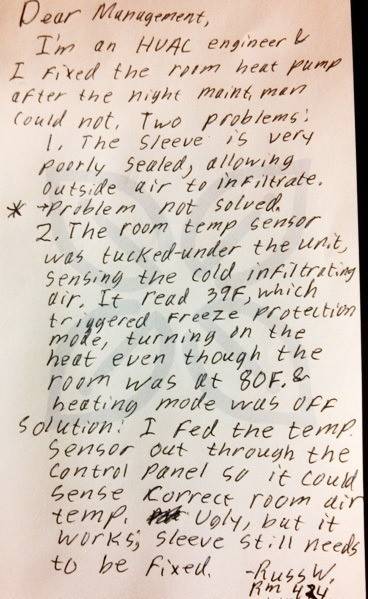 Dear Management,
I'm an HVAC engineer &
I fixed the room heat pump
after the night maint, man
could not. Two problems:
1. The sleeve is very
poorly sealed, allowing
outside air to infiltrate.
* →Problem not solved.
2. The room temp sensor
was tucked-under the unit,
sensing the cold infiltrating
air. It read 39F, which
triggered Freeze Protection
mode, turning on the
heat even though the
room was at 80F. &
heating mode was off
Solution: I fed the temp.
sensor out through the
control panel so it could
sense correct room air
temp. Ugly, but it
works; sleeve still needs
to be fixed. -Russ W.
Rm 424